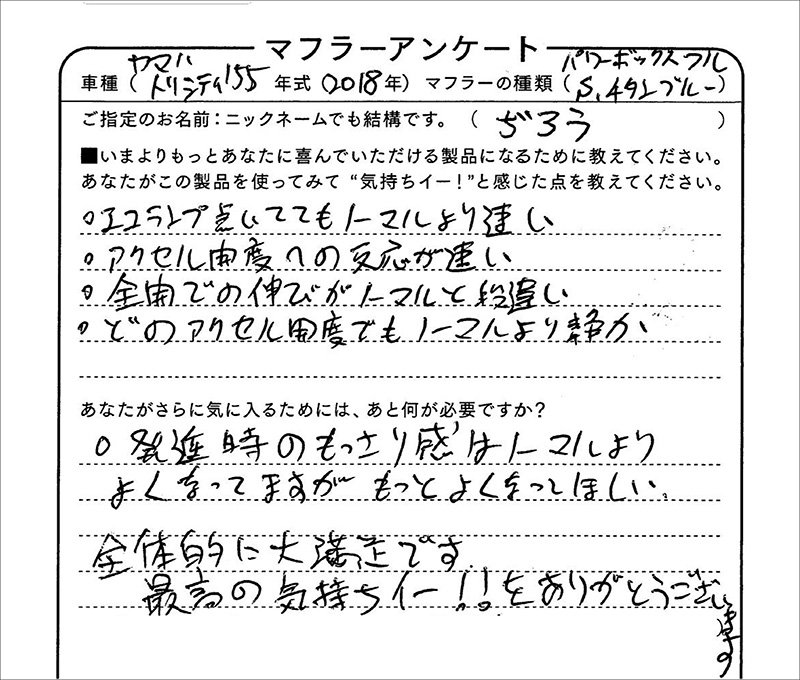 マフラーアンケート
車種（ヤマハ トリシティ155 年式（2018年）マフラーの種類（パワーボックスフル S.チタンブルー）
ご指定のお名前：ニックネームでも結構です。（ ぢろう ）
■いまよりもっとあなたに喜んでいただける製品になるために教えてください。
あなたがこの製品を使ってみて “気持ちイー！”と感じた点を教えてください。
○エコランプ点いててもノーマルより速い
○アクセル開度への反応が速い
○全開での伸びがノーマルと段違い
○どのアクセル開度でもノーマルより静か
あなたがさらに気に入るためには、あと何が必要ですか？
○発進時のもっさり感はノーマルより
よくなってますが もっとよくなってほしい。
全体的に大満足です
最高の気持ちイー！！をありがとうございます